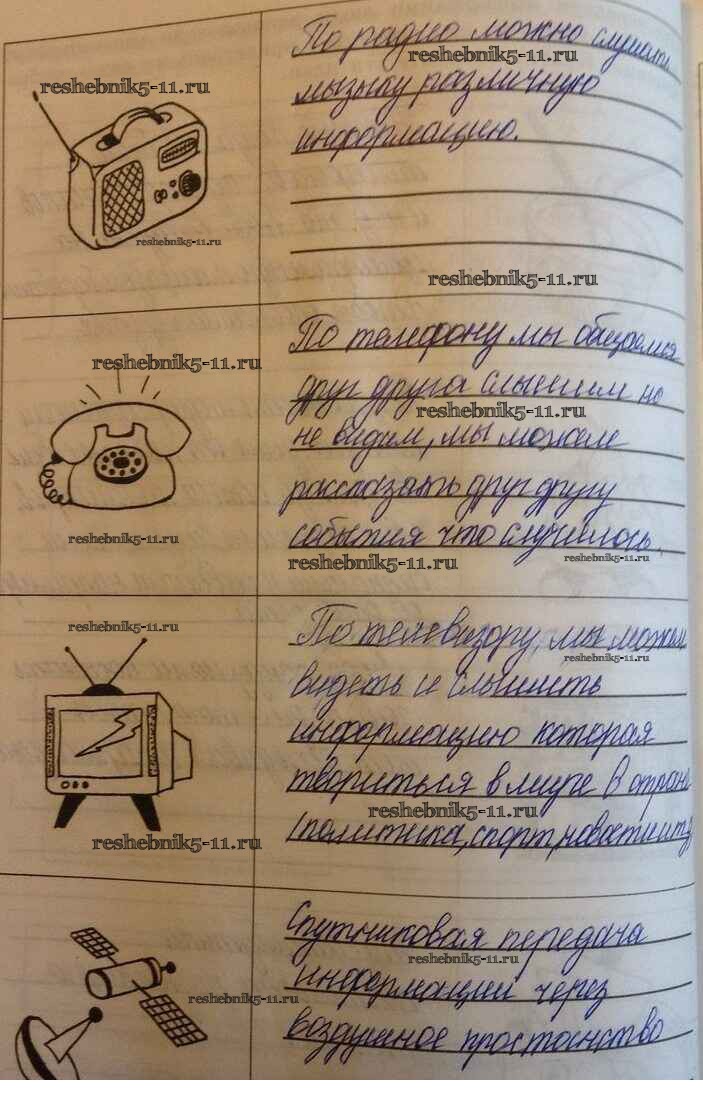 По радио можно слушать
reshebnik5-11.ru
reshebnik5-11.ru
мызыку различную
информацию.
reshebnik5-11.ru
reshebnik5-11.ru
По телефону мы общаемся
reshebnik5-11.ru
друг друга слышим но
reshebnik5-11.ru
не видим, мы можем
рассказать друг другу
события что случилось.
reshebnik5-11.ru
reshebnik5-11.ru
reshebnik5-11.ru
reshebnik5-11.ru
По телевизору, мы можем
reshebnik5-11.ru
видеть и слышить
информацию которая
твориться в мире в стране
reshebnik5-11.ru
(политика, спорт, новости итд
reshebnik5-11.ru
Спутниковая передача
reshebnik5-11.ru
информации через
reshebnik5-11.ru
воздушное простонство